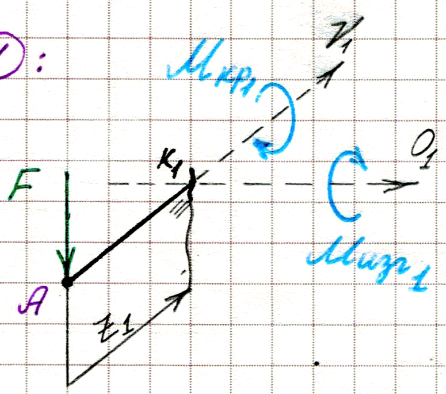 ):
V₁
Mкр₁
K₁
O₁
F
Mизг₁
A
z₁